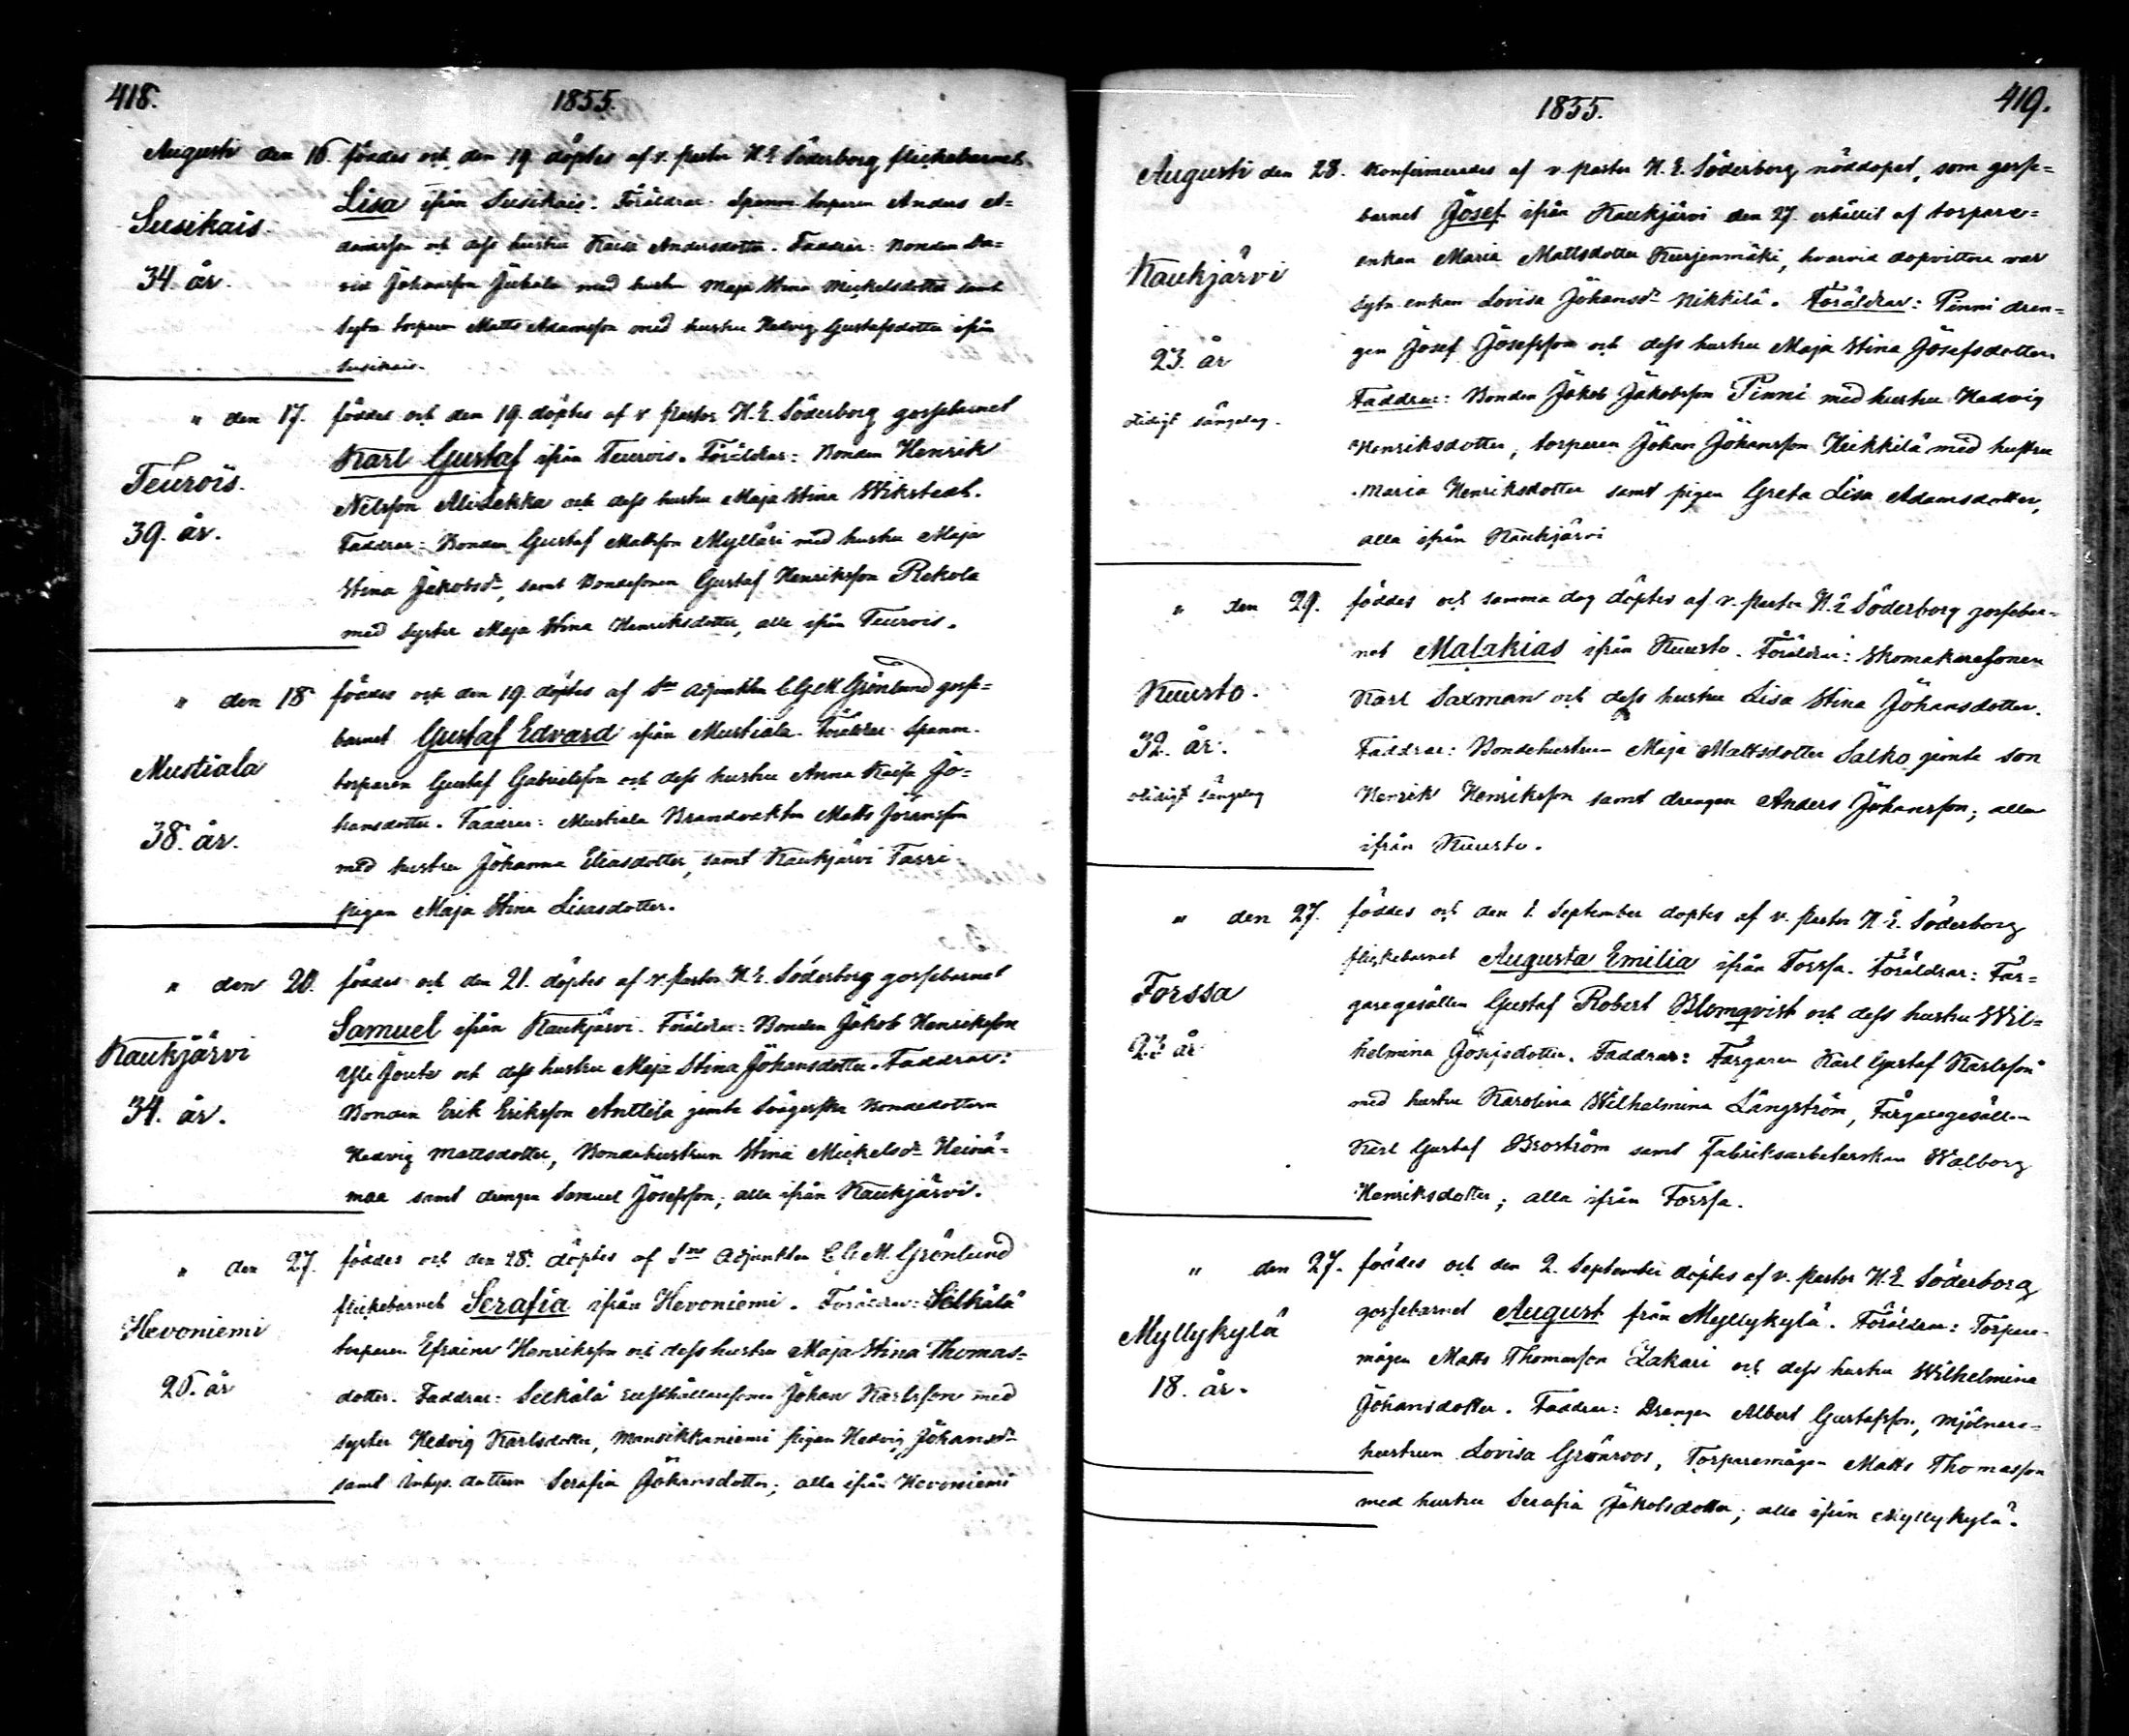 418.
1855.
Augusti den 16. föddes och den 19. döptes af v. pastor H. E. Söderborg flickebarnet
Susikais. Lisa ifrån Susikais. Föräldrar: Spanm. torparen Anders A-
34. år. damsson och dess hustru Kaisa Andersdotter. Faddrar: Bonden Da-
vid Johansson Jutila med hustru Maja Stina Mickelsdotter samt
Sytn. torparen Matts Adamsson med hustru Hedvig Gustafsdotter ifrån
Susikais.
" den 17. föddes och den 19. döptes af v. Pastor H. E. Söderborg gossebarnet
Teurois. Karl Gustaf ifrån Teurois. Föräldrar: Bonden Henrik
39. år. Nilsson Ali Lekka och dess hustru Maja Stina Wikstedt.
Faddrar: Bonden Gustaf Mattsson Mylläri med hustru Maja
Stina Jakobsdr, samt Bondesonen Gustaf Henriksson Rekola
med syster Maja Stina Henriksdotter, alla ifrån Teurois.
" den 18 föddes och den 19. döptes af Sne adjunkten C G M Grönlund gosse-
Mustiala barnet Gustaf Edvard ifrån Mustiala. Föräldrar: Spanm.
torparen Gustaf Gabrielsson och dess hustru Anna Kaisa Jo-
38. år. hansdotter. Faddrar: Mustiala Brandvakten Matts Jöransson
med hustru Johanna Eliasdotter, samt Kaukjärvi Tarri
pigan Maja Stina Lisasdotter.
" den 20. föddes och den 21. döptes af v. Pastor H. E. Söderborg gossebarnet
Kaukjärvi Samuel ifrån Kaukjärvi. Föräldrar: Bonden Jakob Henriksson
Yli Jouta och dess hustru Maja Stina Johansdotter. Faddrar:
34. år. Bonden Erik Eriksson Anttila jemte Svägerskan Bondedottern
Hedvig Mattsdotter, Bondehustrun Stina Mickelsdr Heinä-
maa samt drengen Samuel Josefsson, alla ifrån Kaukjärvi.
" den 27. föddes och den 28. döptes af Sne adjunkten C G M. Grönlund
Hevoniemi flickebarnet Serafia ifrån Hevoniemi. Föräldrar: Selkälä
torparen Efraim Henriksson och dess hustru Maja Stina Thomas-
20. år dotter. Faddrar: Selkälä rusthållaresonen Johan Karlsson med
syster Hedvig Karlsdotter, Mansikkaniemi pigan Hedvig Johansdr
samt Inhys. dottern Serafia Johansdotter; alla ifrån Hevoniemi
419.
1855.
Augusti den 28. konfirmerades af v. pastor H. E. Söderborg nöddopet, som gosse-
barnet Josef ifrån Kaukjärvi den 27. erhållit af torpare-
Kaukjärvi enkan Maria Mattsdotter Kurjenmäki, hvarvid dopvittne var
sytn. enkan Lovisa Johansdr Nikkilä. Föräldrar: Pinni dren-
23. år gen Josef Josefsson och dess hustru Maja Stina Josefsdotter.
Faddrar: Bonden Jakob Jakobsson Pinni med hustru Hedvig
otidigt sängelag. Henriksdotter, torparen Johan Johansson Heikkilä med hustru
Maria Henriksdotter samt pigan Greta Lisa Adamsdotter,
alla ifrån Kaukjärvi
" den 29. föddes och samma dag döptes af v. Pastor H. E Söderborg gossebar-
net Malakias ifrån Kuusto. Föräldrar: Skomakaresonen
Kuusto. Karl Saxman och dess hustru Lisa Stina Johansdotter.
32. år. Faddrar: Bondehustrun Maja Mattsdotter Salko jemte son
otidigt sängelag Henrik Henriksson samt drengen Anders Johansson; alla
ifrån Kuusto.
" den 27. föddes och den 1. September döptes af v. Pastor H. E. Söderborg
Forssa flickebarnet Augusta Emilia ifrån Forssa. Föräldrar: Fär-
garegesällen Gustaf Robert Blomqvist och dess hustru Wil-
23 år helmina Josefsdotter. Faddrar: Färgaren Karl Gustaf Karlsson
med hustru Karolina Wilhelmina Långström, Färgaregesällen
Karl Gustaf Broström samt fabriksarbeterskan Walborg
Henriksdotter; alla ifrån Forssa.
" den 27. föddes och den 2. September döptes af v. Pastor H. E Söderborg
Myllykylä gossebarnet August från Myllykylä. Föräldrar: Torpare-
mågen Matts Thomasson Zakari och dess hustru Wilhelmina
18. år. Johansdotter. Faddrar: Drengen Albert Gustafsson, mjölnare-
hustrun Lovisa Grönroos, Torparemågen Matts Thomasson
med hustru Serafia Jakobsdotter; alla ifrån Myllykylä.